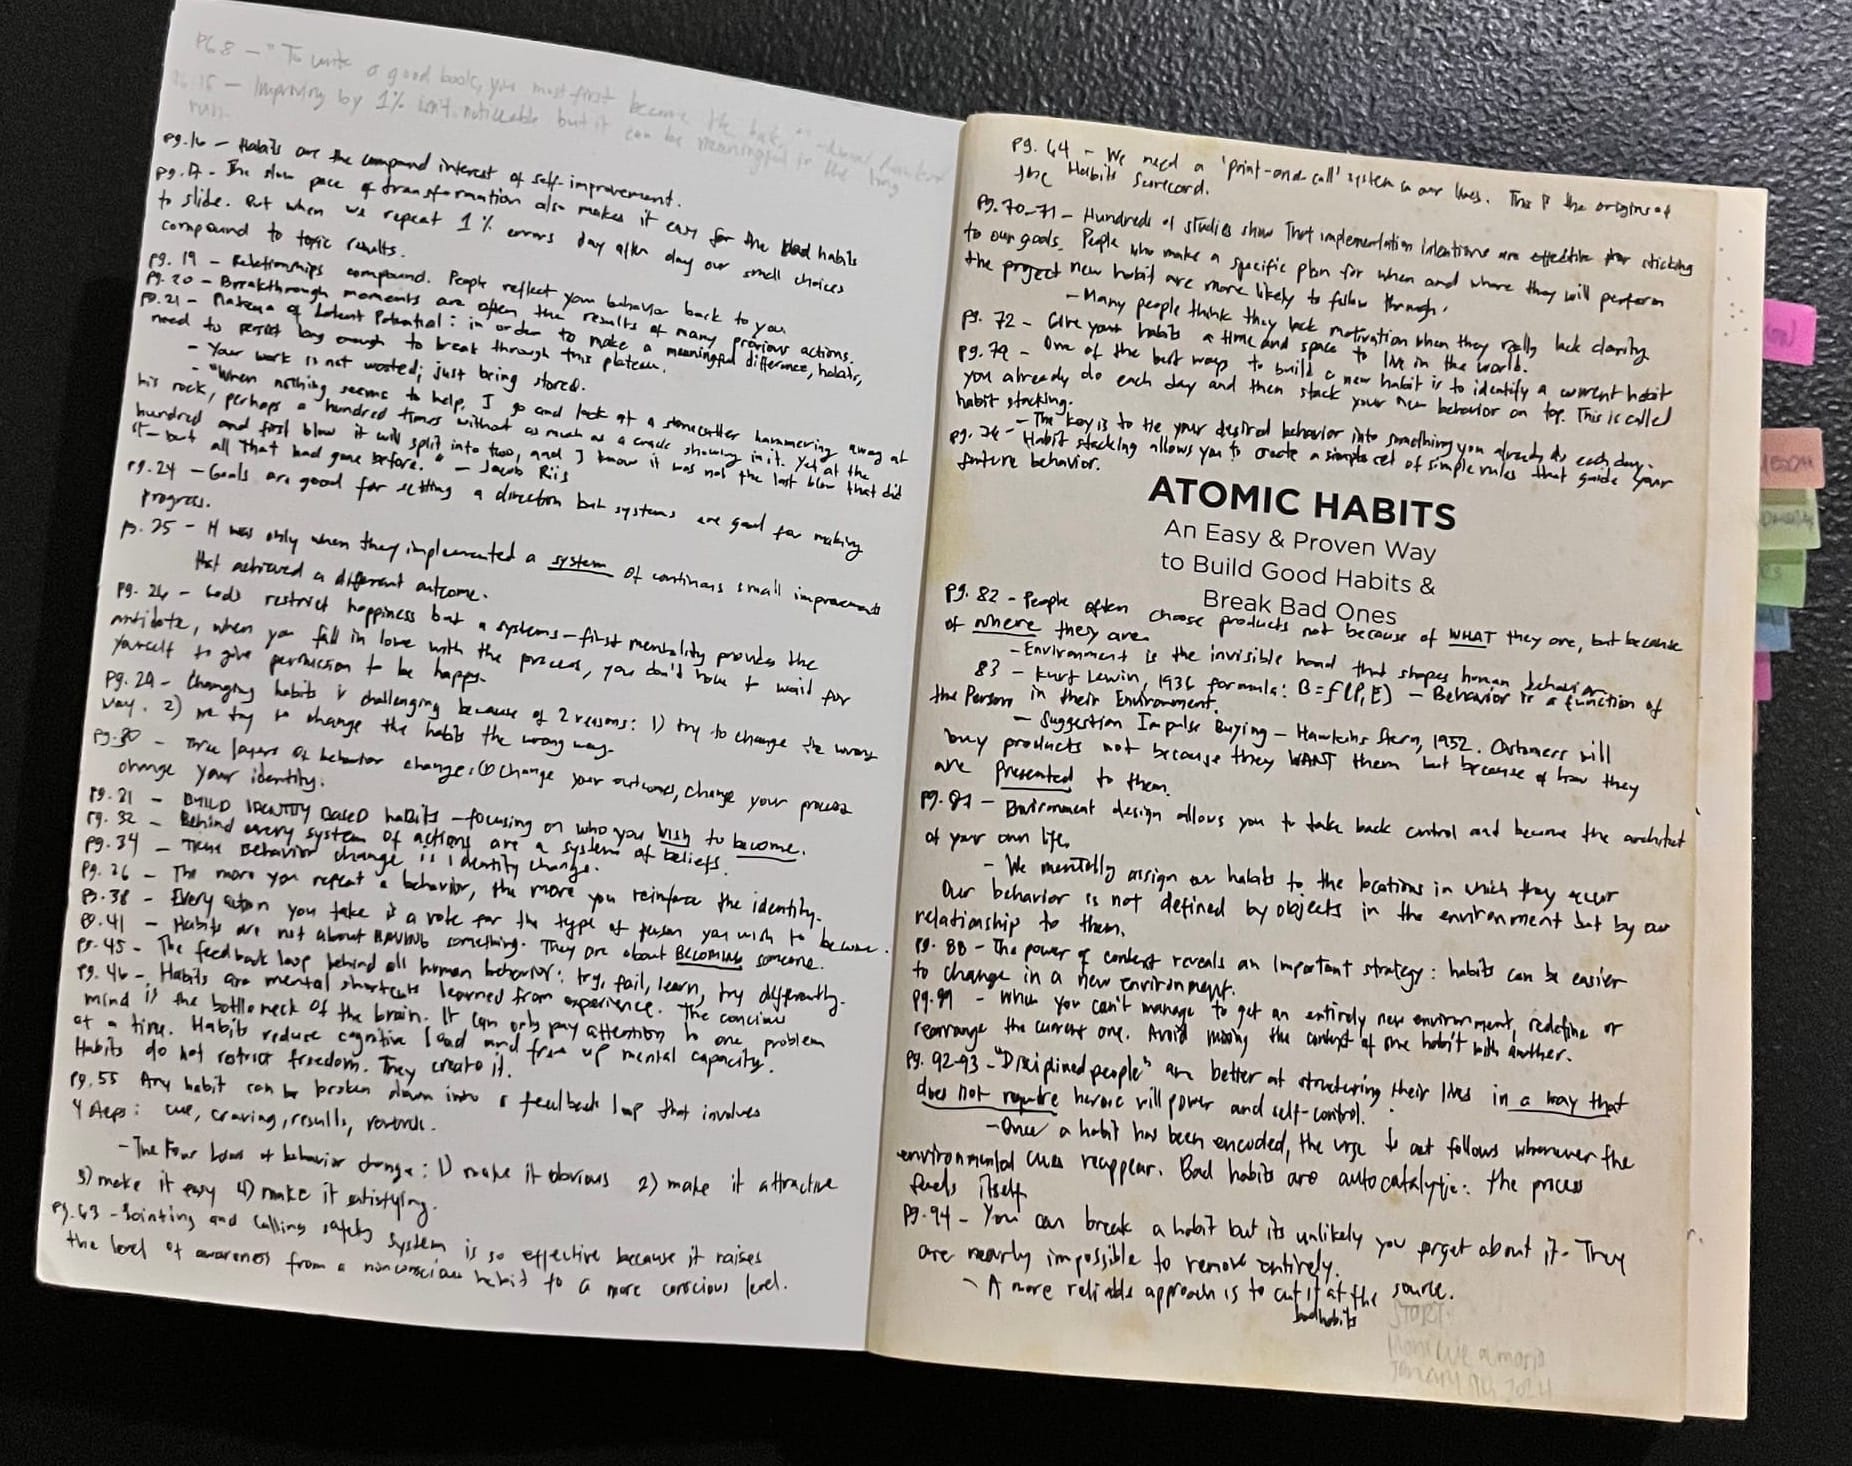 PG 8 – "To write a good book, you must first become the book."
Improving by 1% isn't noticeable but it can be meaningful in the long
run.
pg. 16 – Habits are the compound interest of self-improvement.
pg. 17 – The slow pace of transformation also makes it easy for the bad habits
to slide. But when we repeat 1% errors day after day our small choices
compound to toxic results.
pg. 19 – Relationships compound. People reflect your behavior back to you
pg. 20 – Breakthrough moments are often the results of many previous actions.
pg. 21 – Plateau of Latent Potential: in order to make a meaningful difference, habits,
need to persist long enough to break through this plateau.
– Your work is not wasted; just being stored.
– "When nothing seems to help, I go and look at a stonecutter hammering away at
his rock, perhaps a hundred times without as much as a crack showing in it. Yet at the
hundred and first blow it will split into two, and I know it was not the last blow that did
it – but all that had gone before." – Jacob Riis
pg. 24 – Goals are good for setting a direction but systems are good for making
progress.
pg. 25 – It was only when they implemented a system of continous small improvements
that achieved a different outcome.
pg. 26 – Goals restrict happiness but a systems-first mentality provides the
antidote, when you fall in love with the process, you don't have to wait for
yourself to give permission to be happy.
pg. 29 – Changing habits is challenging because of 2 reasons: 1) try to change the wrong
way. 2) we try to change the habits the wrong way.
pg. 30 – Three layers of behavior change: (1) Change your outcomes, change your process
change your identity.
pg. 31 – BUILD IDENTITY BASED habits – focusing on who you wish to become.
pg. 32 – Behind every system of actions are a system of beliefs.
pg. 34 – True Behavior change is identity change.
pg. 36 – The more you repeat a behavior, the more you reinforce the identity.
pg. 38 – Every action you take is a vote for the type of person you wish to become.
pg. 41 – Habits are not about HAVING something. They are about BECOMING someone.
pg. 45 – The feedback loop behind all human behavior: try, fail, learn, try differently.
pg. 46 – Habits are mental shortcuts learned from experience. The concious
mind is the bottleneck of the brain. It can only pay attention to one problem
at a time. Habits reduce cognitive load and free up mental capacity.
Habits do not restrict freedom. They create it.
pg. 55 Any habit can be broken down into a feedback loop that involves
4 steps: cue, craving, results, rewards.
– The Four Laws of behavior change: 1) make it obvious 2) make it attractive
3) make it easy 4) make it satisfying.
pg. 63 – Pointing and Calling safety system is so effective because it raises
the level of awareness from a nonconscious habit to a more conscious level.
pg. 64 – We need a 'point-and-call' system in our lives. This is the origins of
the Habits Scorecard.
pg. 70-71 – Hundreds of studies show that implementation intentions are effective for sticking
to our goals. People who make a specific plan for when and where they will perform
the project new habit are more likely to follow through.
– Many people think they lack motivation when they really lack clarity.
pg. 72 – Give your habits a time and space to live in the world.
pg. 79 – One of the best ways to build a new habit is to identify a current habit
you already do each day and then stack your new behavior on top. This is called
habit stacking.
– The key is to tie your desired behavior into something you already do each day.
– Habit stacking allows you to create a simple set of simple rules that guide your
future behavior.
ATOMIC HABITS
An Easy & Proven Way
to Build Good Habits &
Break Bad Ones
pg. 82 – People often choose products not because of WHAT they are, but because
of where they are.
– Environment is the invisible hand that shapes human behavior.
83 – Kurt Lewin, 1936 formula: B=f(P,E) – Behavior is a function of
the Person in their Environment.
– Suggestion Impulse Buying – Hawkins Stern, 1952. Customers will
buy products not because they WANT them but because of how they
are presented to them.
pg. 87 – Environment design allows you to take back control and become the architect
of your own life.
– We mentally assign our habits to the locations in which they occur
Our behavior is not defined by objects in the environment but by our
relationship to them.
pg. 88 – The power of context reveals an important strategy: habits can be easier
to change in a new environment.
– When you can't manage to get an entirely new environment, redefine or
rearrange the current one. Avoid mixing the context of one habit with another.
pg. 92-93 – "Disciplined people" are better at structuring their lives in a way that
does not require heroic willpower and self-control.
– Once a habit has been encoded, the urge to act follows whenever the
environmental cues reappear. Bad habits are autocatalytic: the process
feeds itself
pg. 94 – You can break a habit but its unlikely you forget about it. They
are nearly impossible to remove entirely.
– A more reliable approach is to cut it at the source.
bad habits
START:
2024